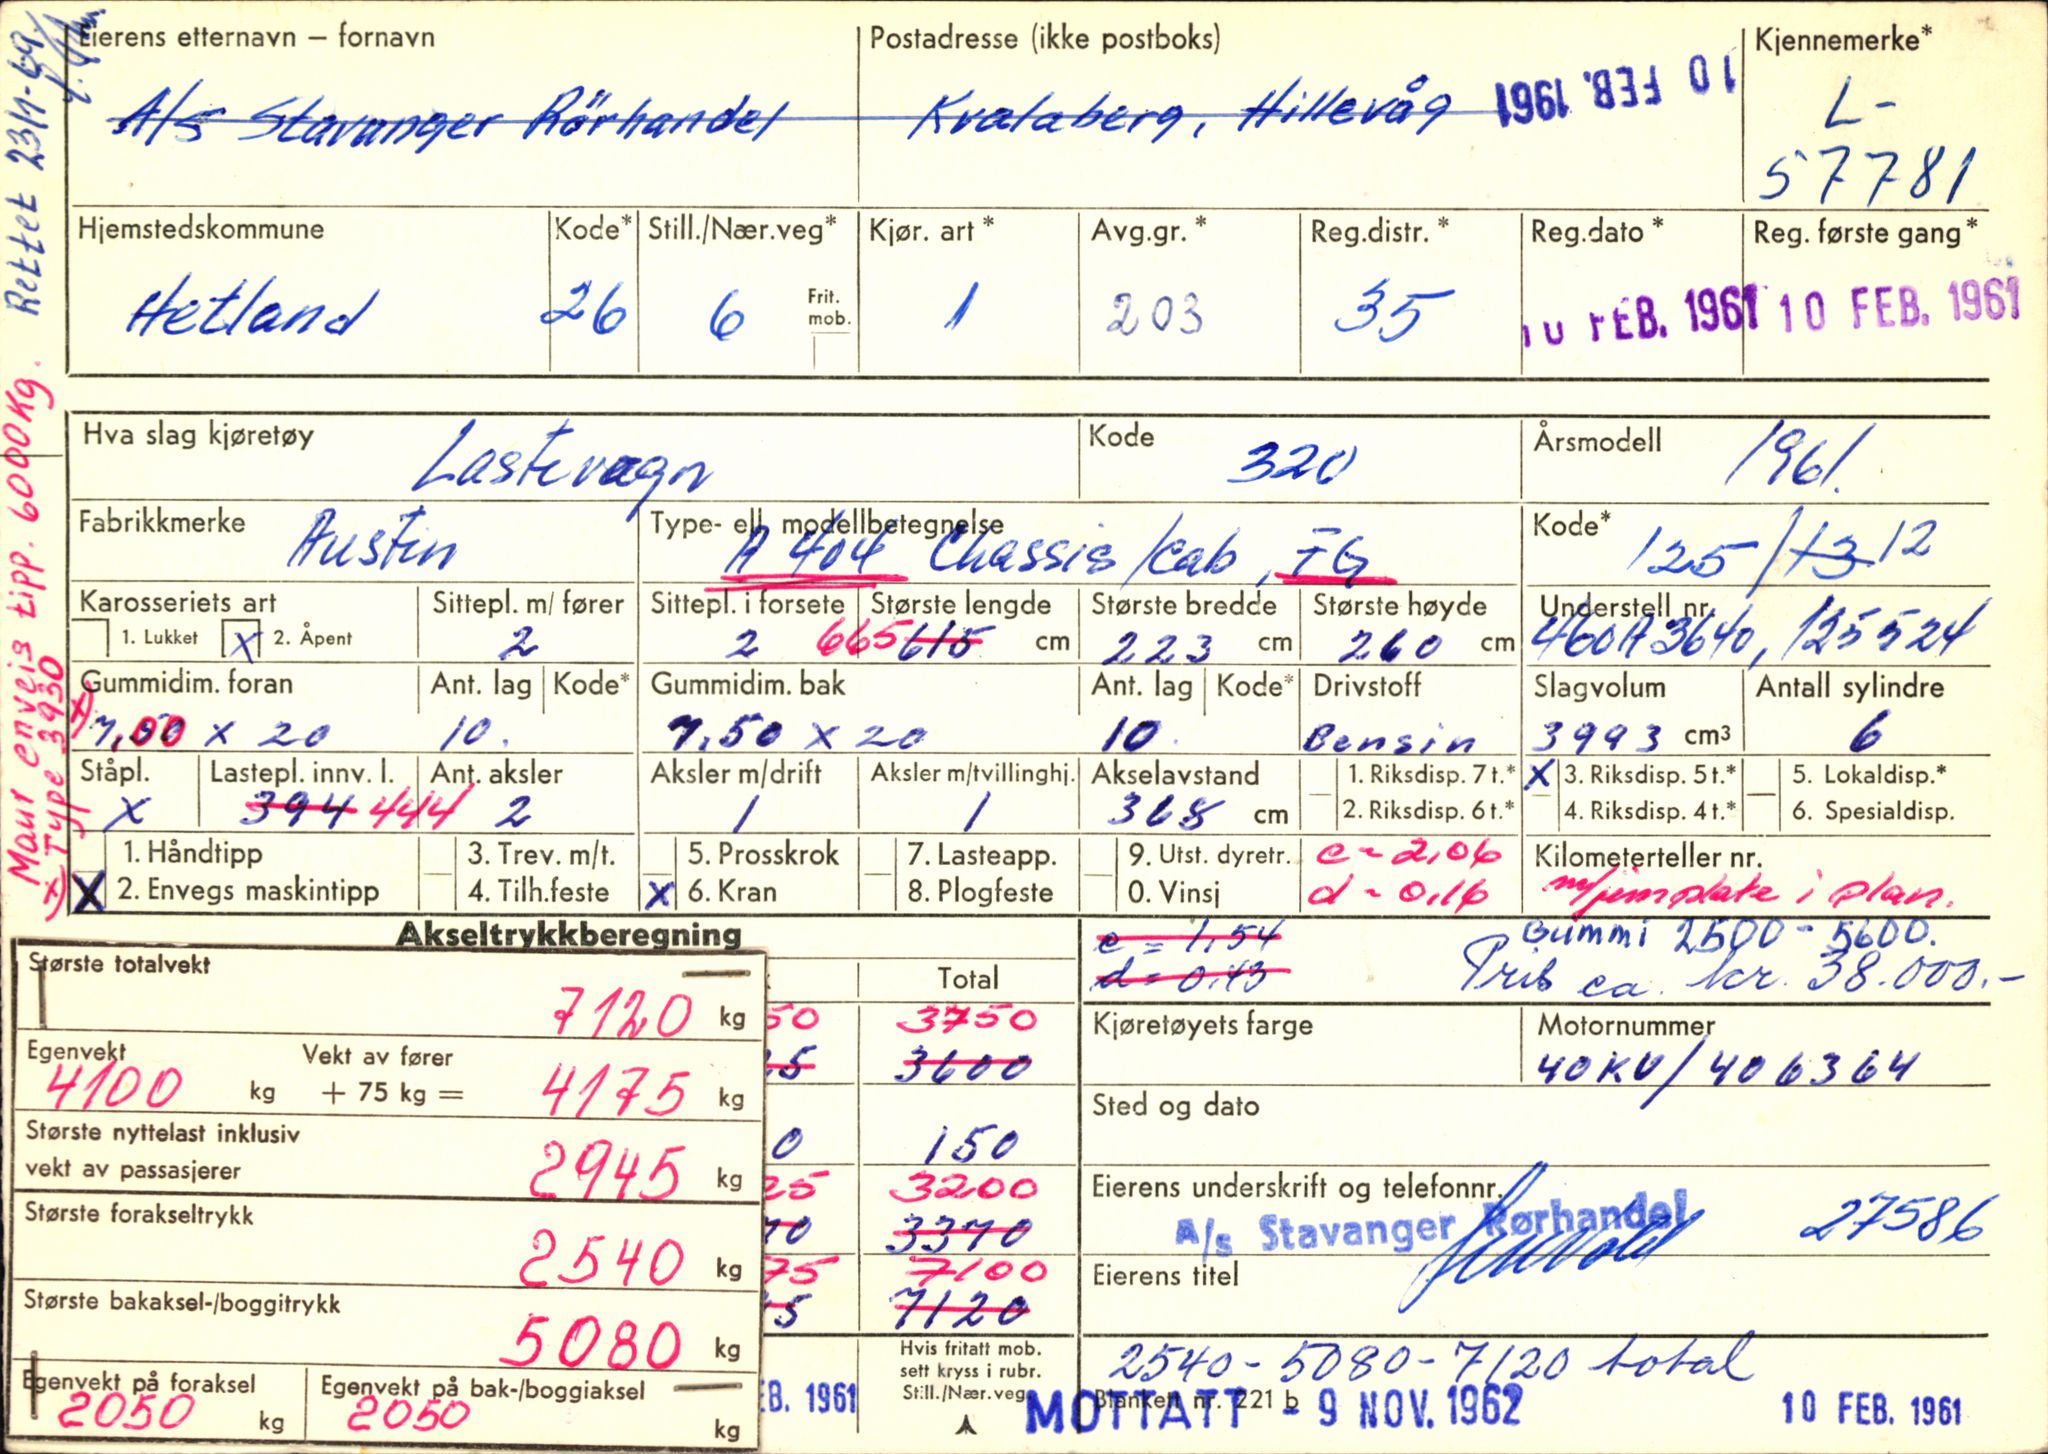 Eierens etternavn – fornavn
A/s Stavanger Rörhandel
Postadresse (ikke postboks)
Kvalaberg, Hillevåg
10 FEB. 1961
Kjennemerke*
L-
57781
Hjemstedskommune
Hetland
Kode*
26
Still./Nær.veg*
6
Frit.
mob.
Kjør. art*
1
Avg.gr.*
203
Reg.distr.*
35
Reg.dato*
10 FEB. 1961
Reg. første gang*
10 FEB. 1961
Rettet 23/1-69
Maur enveis tipp. 6000 Kg.
x) Type 3930
Hva slag kjøretøy
Lastevogn
Kode
320
Årsmodell
1961.
Fabrikkmerke
Austin
Type- ell. modellbetegnelse
A 404 Chassis/cab, FG
Kode*
125/13 12
Karosseriets art
1. Lukket
X 2. Åpent
Sittepl. m/ fører
2
Sittepl. i forsete
2
Største lengde
665 615 cm
Største bredde
223 cm
Største høyde
260 cm
Understell nr.
460A3640, 125524
Gummidim. foran
x) 7,00 x 20
Ant. lag
10.
Kode*
Gummidim. bak
7,50 x 20
Ant. lag
10.
Kode*
Drivstoff
Bensin
Slagvolum
3993 cm³
Antall sylindre
6
Ståpl.
X
Lastepl. innv. l.
394 444
Ant. aksler
2
Aksler m/drift
1
Aksler m/tvillinghj.
1
Akselavstand
368 cm
1. Riksdisp. 7 t.*
2. Riksdisp. 6 t.*
X 3. Riksdisp. 5 t.*
4. Riksdisp. 4 t.*
5. Lokaldisp.*
6. Spesialdisp.
1. Håndtipp
X 2. Envegs maskintipp
3. Trev. m/t.
4. Tilh.feste
5. Prosskrok
X 6. Kran
7. Lasteapp.
8. Plogfeste
9. Utst. dyretr.
0. Vinsj
c = 2,06
d = 0,16
Kilometerteller nr.
m/jernplate i plan.
Akseltrykkberegning
c = 1,54
d = 0,43
Gummi 2500 - 5600.
Pris ca. kr. 38.000.-
Største totalvekt
7120 kg
Egenvekt
4100 kg
Vekt av fører
+ 75 kg =
4175 kg
Største nyttelast inklusiv
vekt av passasjerer
2945 kg
Største forakseltrykk
2540 kg
Største bakaksel-/boggitrykk
5080 kg
Egenvekt på foraksel
2050 kg
Egenvekt på bak-/boggiaksel
2050 kg
Total
50 3750
3600
0 150
25 3200
70 3370
75 7100
7120
EB. 1961
Hvis fritatt mob.
sett kryss i rubr.
Still./Nær.veg
Kjøretøyets farge
Motornummer
40KV/406364
Sted og dato
Eierens underskrift og telefonnr.
A/s Stavanger Rørhandel
27586
Eierens titel
2540 - 5080 - 7120 total
Blankett nr. 221 b
MOTTATT - 9 NOV. 1962
10 FEB. 1961